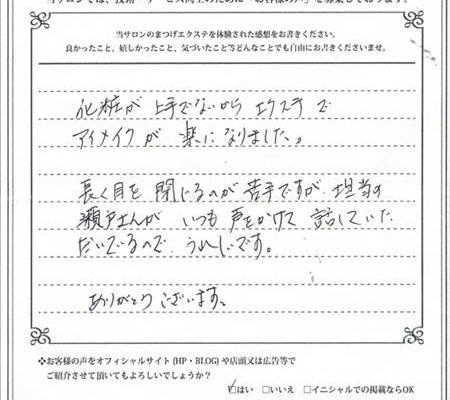 当サロンでは、技術・サービス向上のために「お客様の声」を募集しております。
当サロンのまつげエクステを体験された感想をお書きください。
良かったこと、嬉しかったこと、気づいたこと等どんなことでも自由にお書きくださいませ。
化粧が上手でないからエクステで
アイメイクが楽になりました。
長く目を閉じるのが苦手ですが、担当の
瀬戸さんがいつも声をかけて話していた
だいているので、うれしいです。
ありがとうございます。
❖お客様の声をオフィシャルサイト(HP・BLOG)や店頭又は広告等で
ご紹介させて頂いてもよろしいでしょうか?
☑はい □いいえ □イニシャルでの掲載ならOK